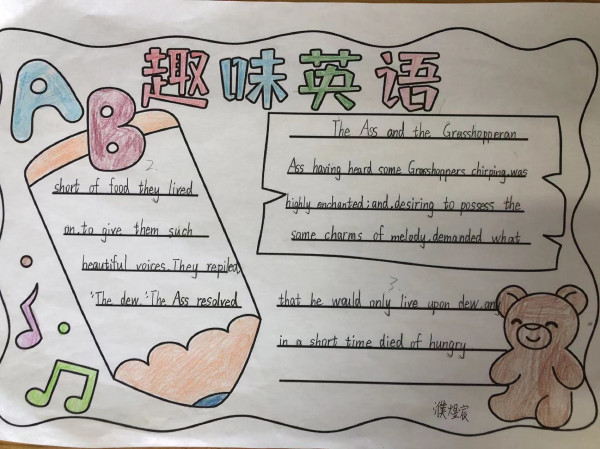 AB
趣味英语
The Ass and the Grasshopperan
Ass having heard some Grasshoppers chirping,was
highly enchanted;and,desiring to possess the
same charms of melody,demanded what
2.
short of food they lived
on,to give them such
beautiful voices.They repiled,
"The dew."The Ass resolved
3.
that he would only live upon dew,any
in a short time died of hungry
濮煜宸